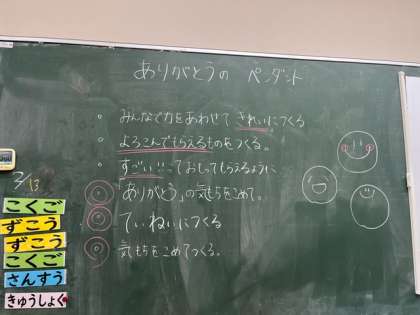 ありがとうの ペンダント
みんなで力をあわせて きれいにつくる
よろこんでもらえるものをつくる。
すごい!!っておもってもらえるように
「ありがとう」の気もちをこめて。
ていねいにつくる
気もちをこめてつくる。
3/13
こくご
ずこう
ずこう
こくご
さんすう
きゅうしょく